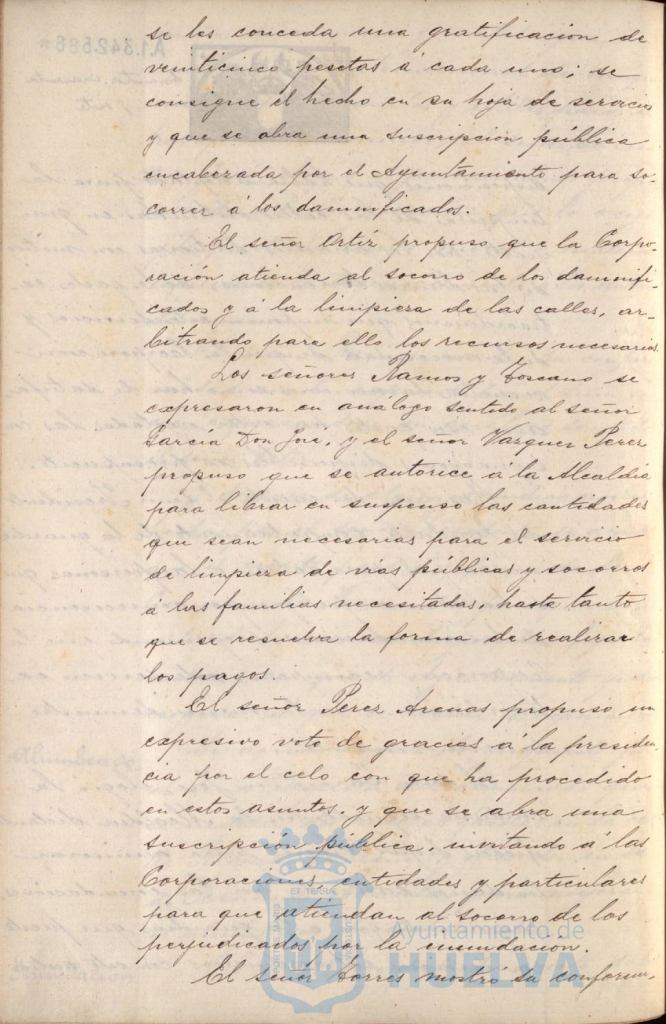 se les conceda una gratificación de
veinticinco pesetas á cada uno; se
consigne el hecho en su hoja de servicios
y que se abra una suscripción pública
encabezada por el Ayuntamiento para so-
correr á los damnificados.
El señor Ortiz propuso que la Corpo-
ración atienda al socorro de los damnifi-
cados y á la limpieza de las calles, ar-
bitrando para ello los recursos necesarios.
Los señores Ramos y Toscano se
expresaron en análogo sentido al señor
García Don José, y el señor Vazquez Perez
propuso que se autorice á la Alcaldía
para librar en suspenso las cantidades
que sean necesarias para el servicio
de limpieza de vías públicas y socorros
á las familias necesitadas, hasta tanto
que se resuelva la forma de realizar
los pagos.
El señor Perez Arenas propuso un
expresivo voto de gracias á la presiden-
cia por el celo con que ha procedido
en estos asuntos, y que se abra una
suscripción pública, invitando á las
Corporaciones, entidades y particulares
para que atiendan al socorro de los
perjudicados por la inundación.
El señor Torres mostró su conformi-
A.1.342.586
Ayuntamiento de
HUELVA